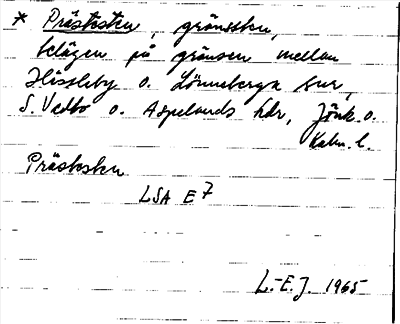 * Prästesten, gränssten,
belägen på gränsen mellan
Hässleby o. Lönneberga snr,
S. Vedbo o. Aspelands hdr, Jönk. o.
Kalm. l.
Prästesten
LSA E7
L.-E.J. 1965